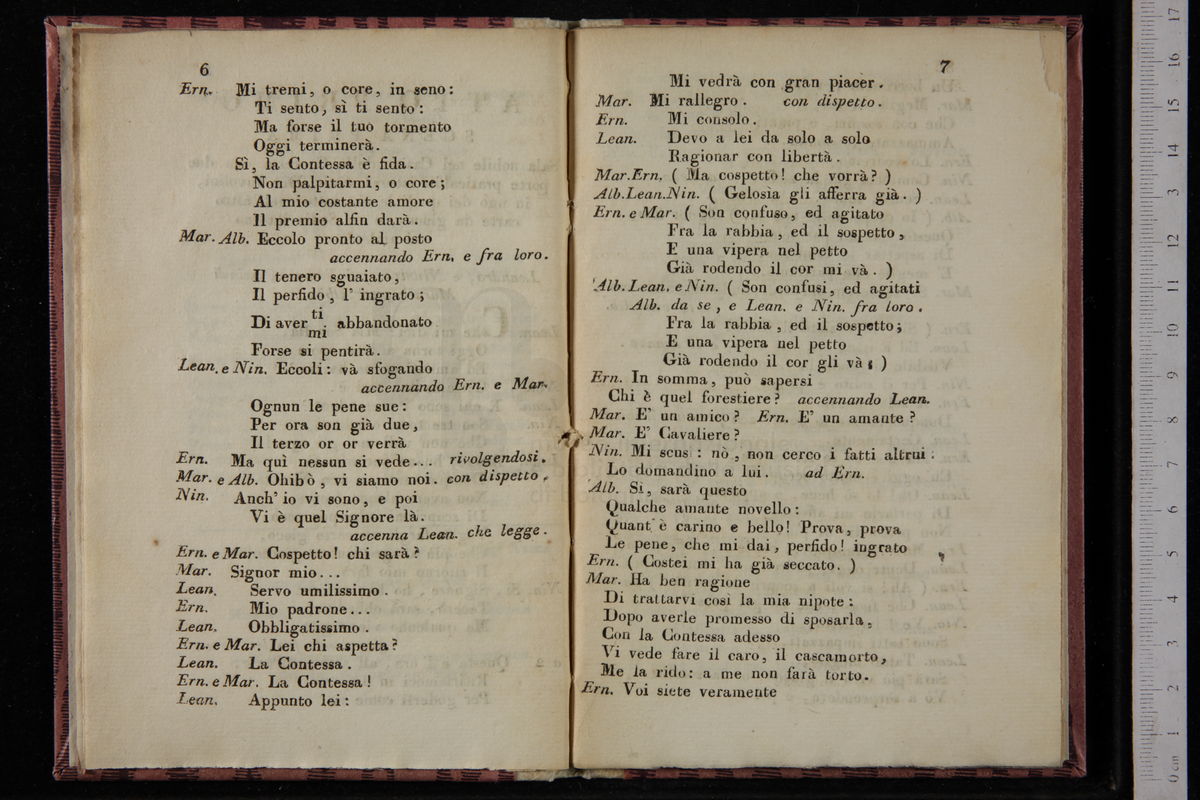 6
Ern. Mi tremi, o core, in seno:
Ti sento, sì ti sento:
Ma forse il tuo tormento
Oggi terminerà.
Sì, la Contessa è fida.
Non palpitarmi, o core;
Al mio costante amore
Il premio alfin darà.
Mar. Alb. Eccolo pronto al posto
accennando Ern. e fra loro.
Il tenero sguaiato,
Il perfido, l' ingrato;
ti
Di aver . abbandonato
mi
Forse si pentirà.
Lean. e Nin. Eccoli: và sfogando
accennando Ern. e Mar.
Ognun le pene sue:
Per ora son già due,
Il terzo or or verrà
Ern. Ma quì nessun si vede... rivolgendosi.
Mar. e Alb. Ohibò, vi siamo noi. con dispetto.
Nin. Anch' io vi sono, e poi
Vi è quel Signore là.
accenna Lean. che legge.
Ern. e Mar. Cospetto! chi sarà?
Mar. Signor mio...
Lean. Servo umilissimo.
Ern. Mio padrone...
Lean. Obbligatissimo.
Ern. e Mar. Lei chi aspetta?
Lean. La Contessa.
Ern. e Mar. La Contessa!
Lean. Appunto lei:
7
Mi vedrà con gran piacer.
Mar. Mi rallegro. con dispetto.
Ern. Mi consolo.
Lean. Devo a lei da solo a solo
Ragionar con libertà.
Mar.Ern. ( Ma cospetto! che vorrà? )
Alb.Lean.Nin. ( Gelosia gli afferra già. )
Ern. e Mar. ( Son confuso, ed agitato
Fra la rabbia, ed il sospetto,
E una vipera nel petto
Già rodendo il cor mi và. )
Alb. Lean. e Nin. ( Son confusi, ed agitati
Alb. da se, e Lean. e Nin. fra loro.
Fra la rabbia, ed il sospetto;
E una vipera nel petto
Già rodendo il cor gli và; )
Ern. In somma, può sapersi
Chi è quel forestiere? accennando Lean.
Mar. E' un amico? Ern. E' un amante?
Mar. E' Cavaliere?
Nin. Mi scusi: nò, non cerco i fatti altrui:
Lo domandino a lui. ad Ern.
Alb. Si, sarà questo
Qualche amante novello:
Quant' è carino e bello! Prova, prova
Le pene, che mi dai, perfido! ingrato
Ern. ( Costei mi ha già seccato. )
Mar. Ha ben ragione
Di trattarvi così la mia nipote:
Dopo averle promesso di sposarla,
Con la Contessa adesso
Vi vede fare il caro, il cascamorto,
Me la rido: a me non farà torto.
Ern. Voi siete veramente